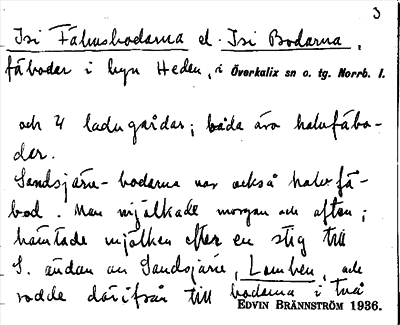 3
Isi Fälmsbodarna el. Isi Bodarna,
fäbodar i byn Heden, i Överkalix sn o. tg. Norrb. l.
och 4 ladugårdar; båda äro halvfäbo-
dar.
Sandsjärv-bodarna var också halvfä-
bod. Man mjölkade morgon och afton;
hämtade mjölken efter en stig till
S. ändan av Sandsjärv, Lomben, och
rodde därifrån till bodarna i två
EDVIN BRÄNNSTRÖM 1936.